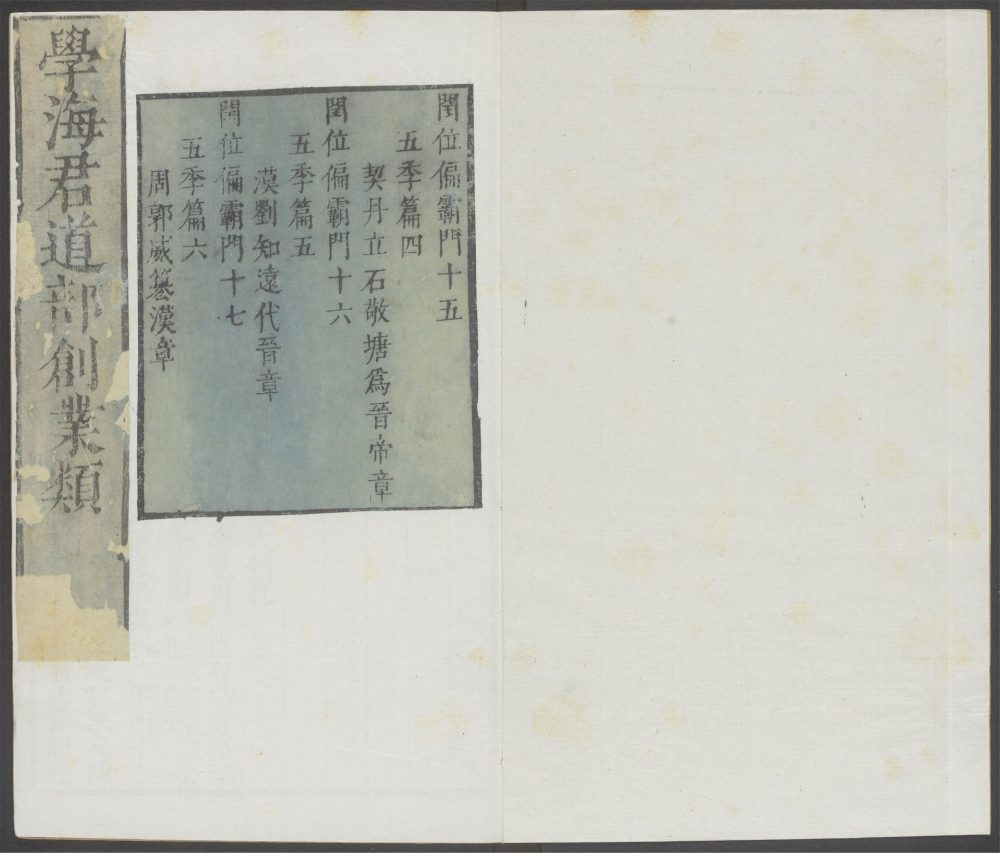 閏位偏霸門十五
五季篇四
契丹立石敬塘爲晉帝章
閏位偏霸門十六
五季篇五
漢劉知遠代晉章
閏位偏霸門十七
五季篇六
周郭威篡漢章
學海君道部創業類